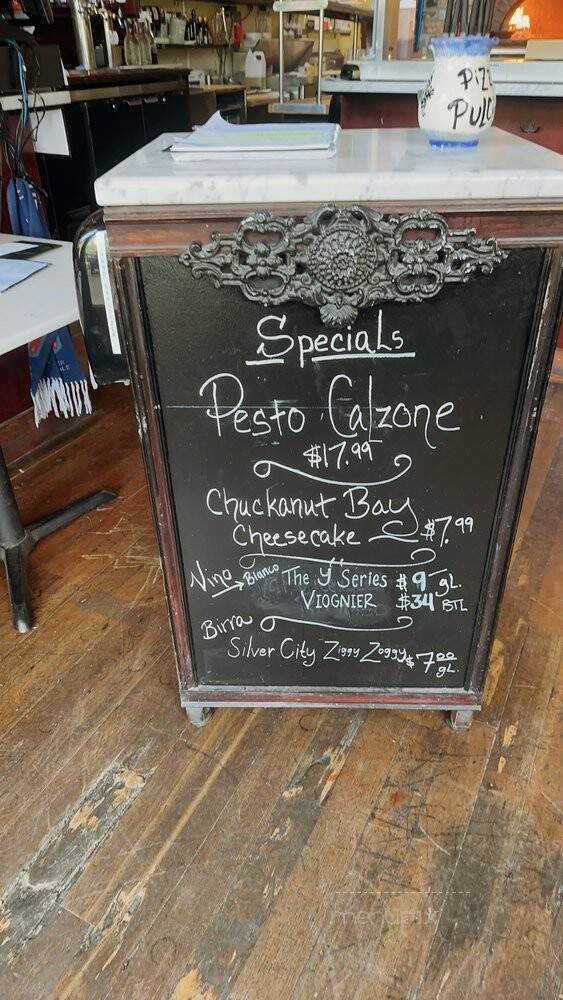 Pizz
Pulc
Specials
Pesto Calzone
$17.99
Chuckanut Bay
Cheesecake $7.99
Vino → Blanco The Y Series $9 gL.
VIOGNIER $34 BTL
Birra
Silver City Ziggy Zoggy $7.00 gL.
menupix